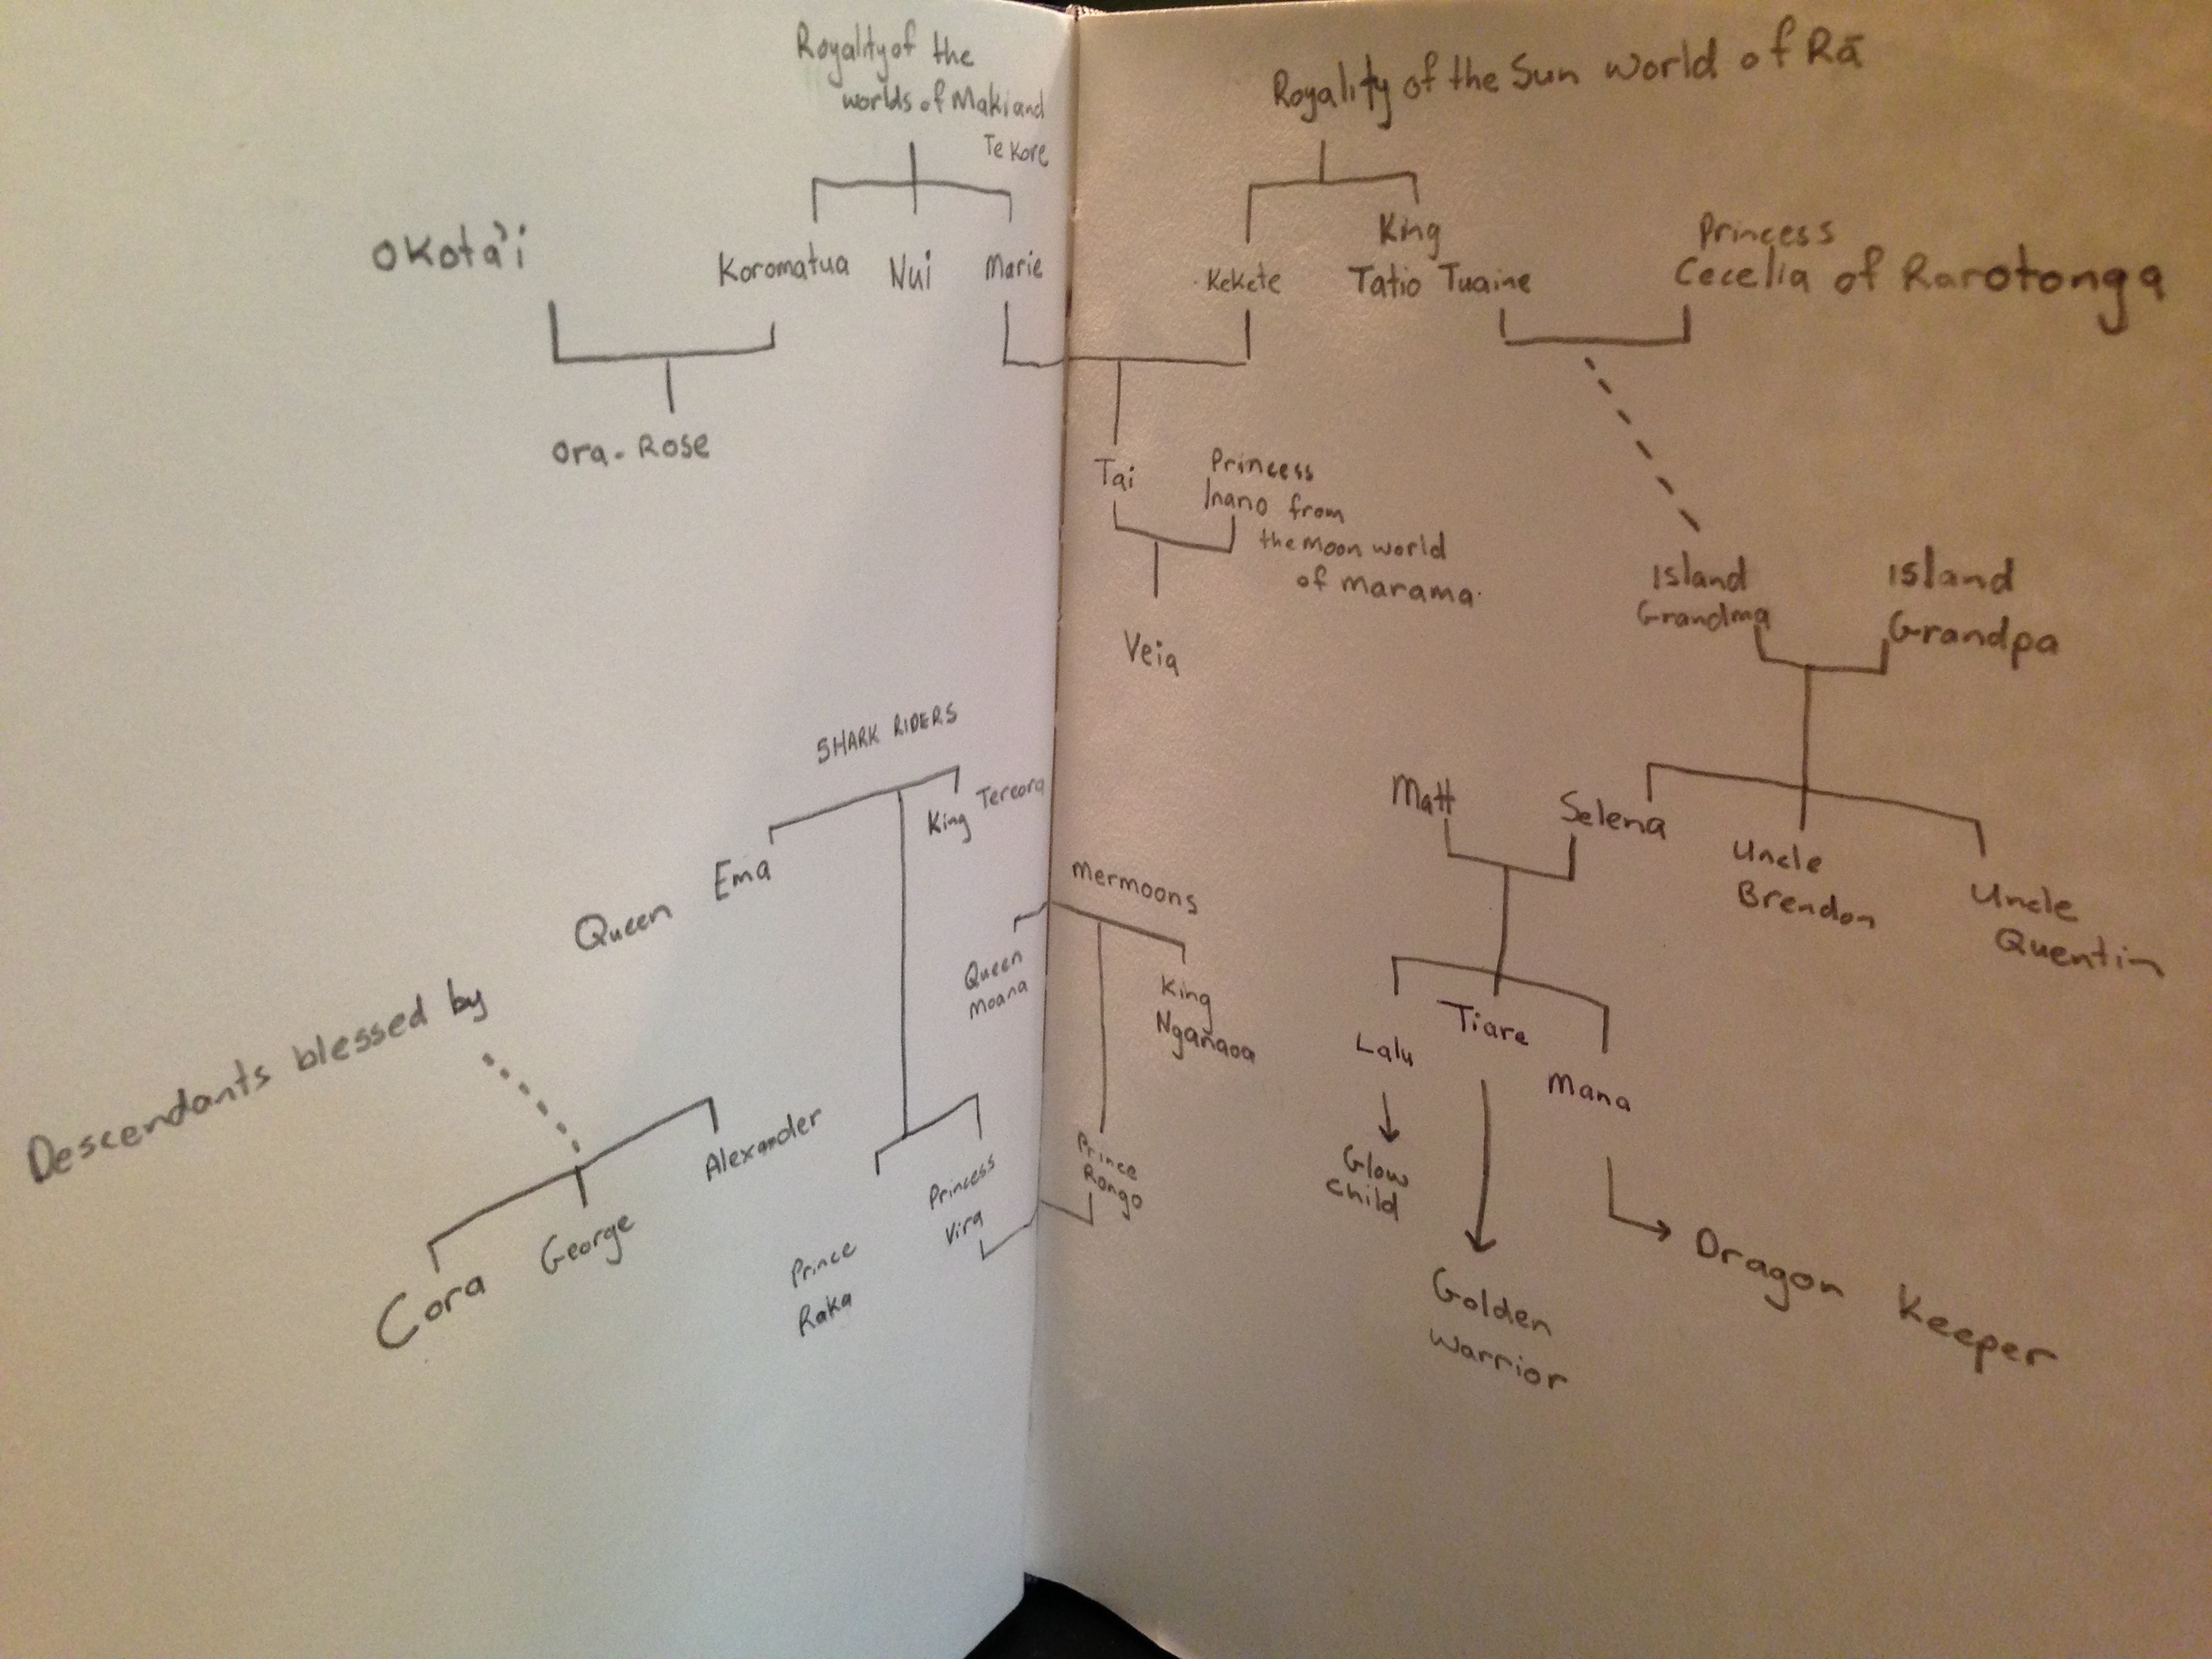 Royality of the
worlds of Maki and
Te Kore
Okota'i
Koromatua
Nui
Marie
Ora-Rose
SHARK RIDERS
Queen Ema
King Tereora
Descendants blessed by
Cora
George
Alexander
Prince
Raka
Princess
Vira
Queen
Moana
Royality of the Sun World of Rā
Kekete
King
Tatio Tuaine
Princess
Cecelia of Rarotonga
Tai
Princess
Inano from
the Moon world
of Marama.
Veia
Island
Grandma
Island
Grandpa
Matt
Selena
Uncle
Brendon
Uncle
Quentin
mermoons
King
Ngañaoa
Prince
Rongo
Lalu
Tiare
Mana
Glow
Child
Golden
Warrior
Dragon Keeper